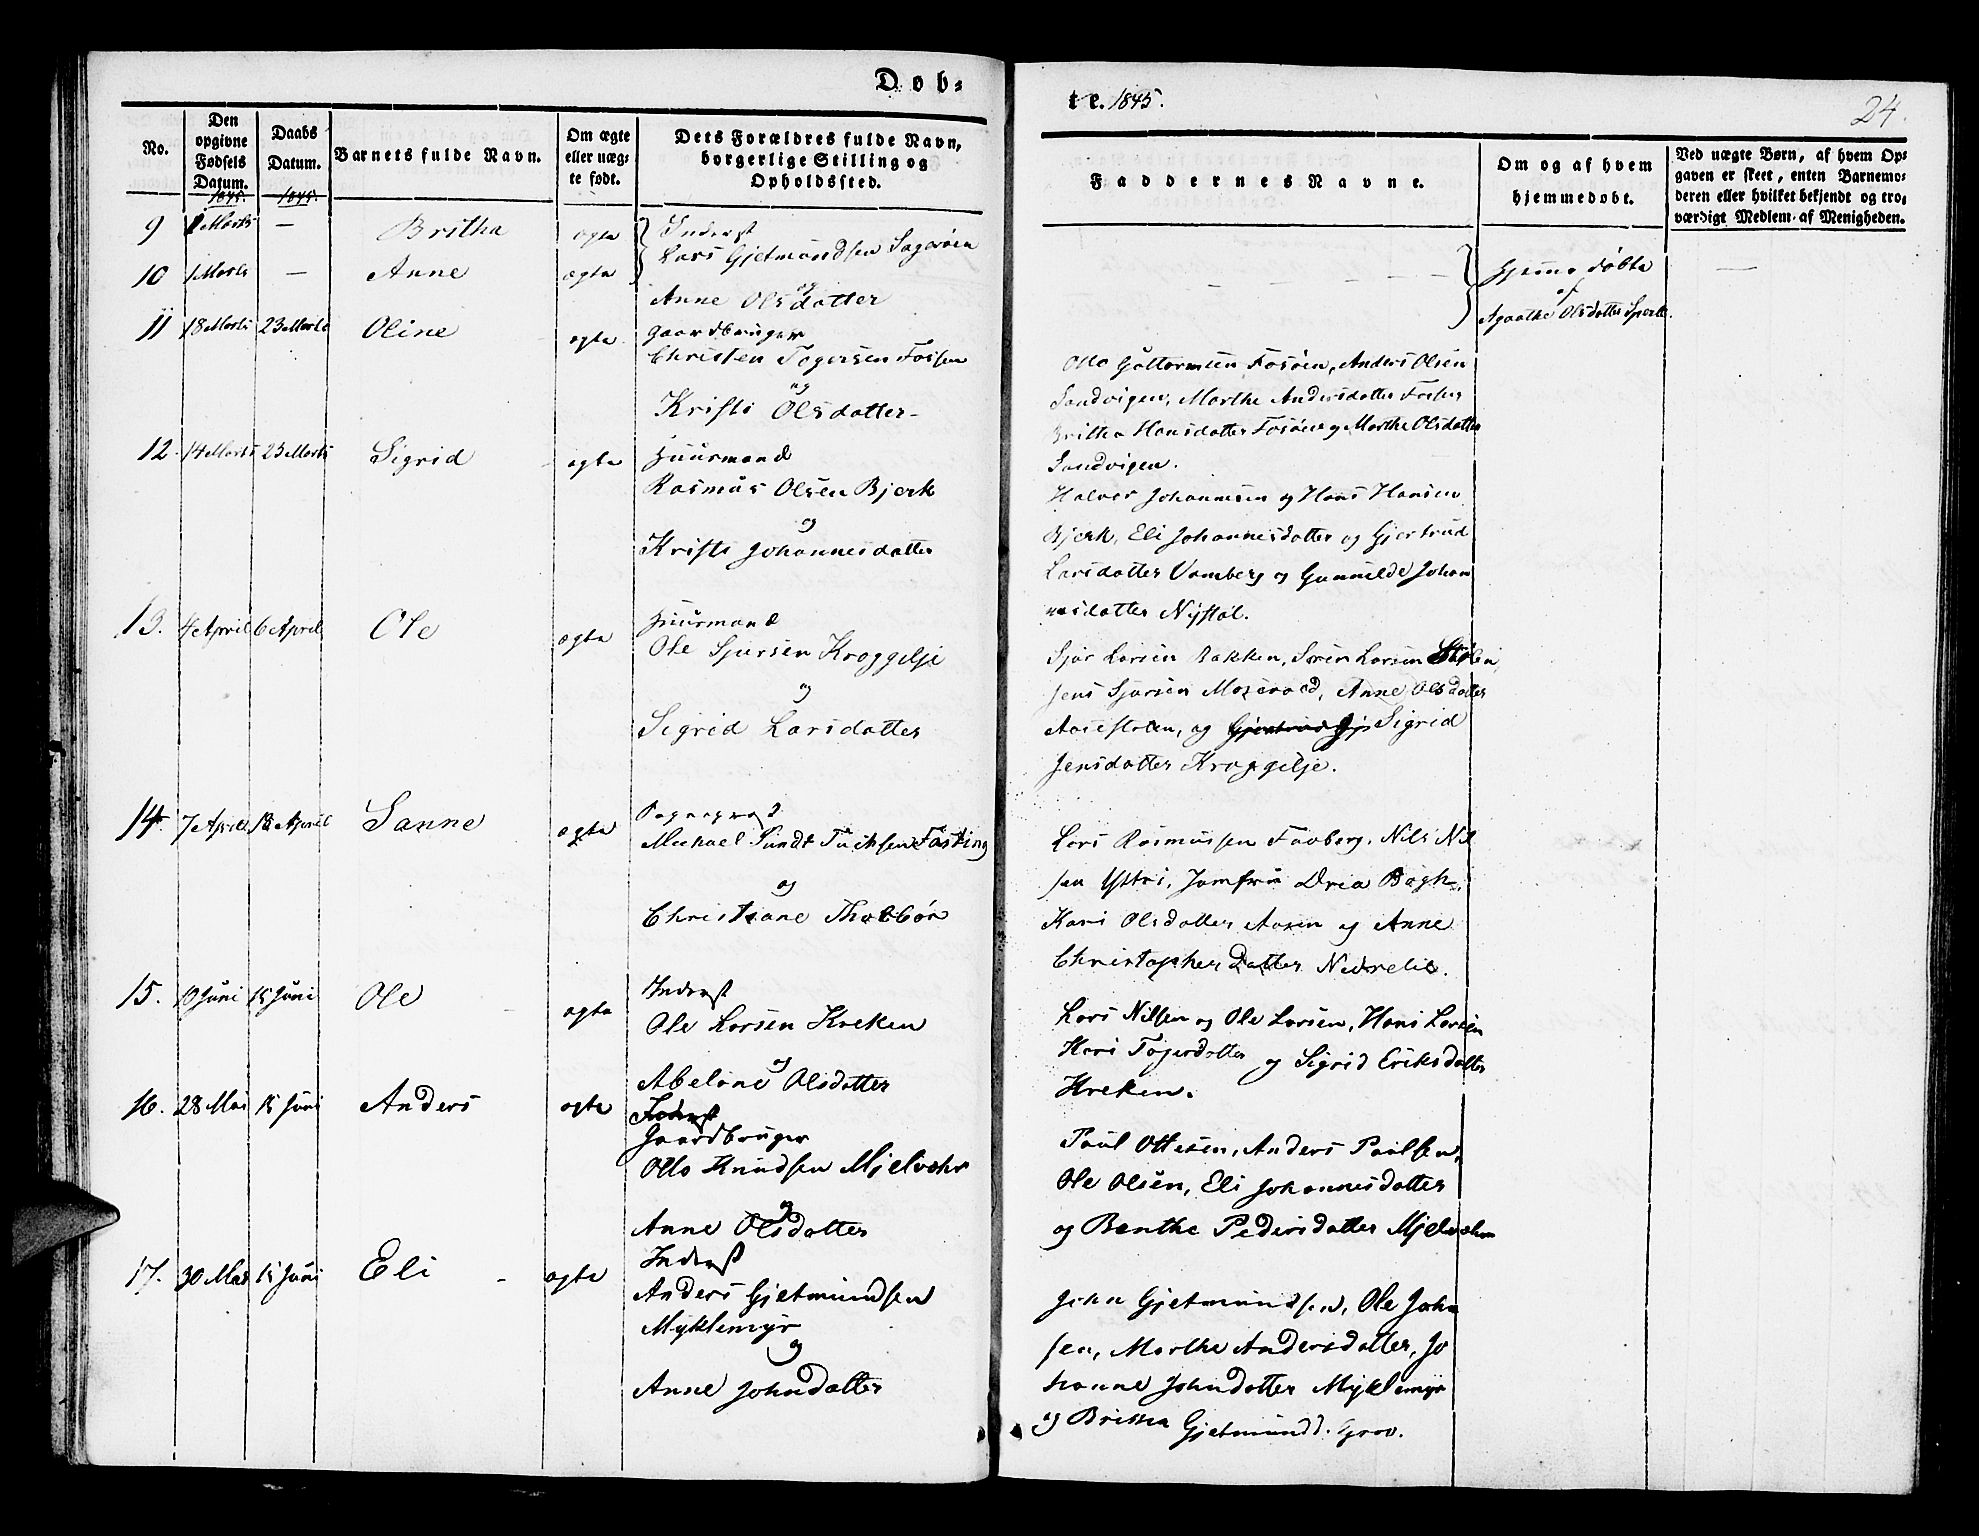 Døb-
te. 1845.
24.
No.
Den opgivne Fødsels Datum.
Daabs Datum.
Barnets fulde Navn.
Om ægte eller uægte født.
Dets Forældres fulde Navn, borgerlige Stilling og Opholdssted.
Faddernes Navne.
Om og af hvem hjemmedøbt.
Ved uægte Børn, af hvem Opgaven er skeet, enten Barnemoderen eller hvilket bekjendt og troværdigt Medlem af Menigheden.
1845. 1845.
9 1 Marts — Britha ægte Inderst
Lars Gjetmundsen Sagerøen
10 1 Marts — Anne ægte
og
Anne Olsdatter
Hjemme døbte
af
Agaathe Olsdatter
11 18 Marts 23 Marts Oline ægte Gaardbruger
Christen Togersen Fossen
og
Kristi Olsdatter
Otto Guttormsen Fosøen, Anders Olsen
Sandvigen, Marthe Andersdatter Fossen
Britha Hansdatter Fosøen og Marthe Olsdatter
Sandvigen.
12. 14 Marts 23 Marts Sigrid ægte Huusmand
Rasmus Olsen Bjerk
og
Kristi Johannesdatter
Halvor Johannesen og Hans Hansen
Bjerk, Eli Johannesdatter og Gjertrud
Larsdatter Vamberg og Gunnilde Johan
nesdatter Nystøl.
13. 4 April 6 April Ole ægte Huusmand
Ole Sjursen Kroggelje
og
Sigrid Larsdatter
Sjur Larsen Bakken, Søren Larsen Stølen
Jens Sjursen Moseroed, Anne Olsdatter
Aasestølen, og Sigrid
Jensdatter Kroggelje.
14. 7 April April Sanne ægte
Michael Sundt Tuchsen Fasting
og
Christiane
Lars Rasmussen Favberg, Nils Nil
sen Yttri, Jomfru Drea Bagh,
Kari Olsdatter Aasen og Anne
Christopherdatter Nedrelie.
15. 10 Juni 15 Juni Ole ægte Inderst
Ole Larsen Kreken
og
Abelone Olsdatter
Lars Nilsen og Ole Larsen, Hans Larsen
Kari Togerdatter og Sigrid Eriksdatter
Kreken.
16. 28 Mai 15 Juni Anders ægte Inderst
Gaardbruger
Otto Knudsen Mjelvehr
og
Anne Olsdatter
Paul Ottesen, Anders Paulsen,
Ole Olsen, Eli Johannesdatter
og Benthe Pedersdatter Mjelvehr
17. 30 Mai 15 Juni Eli ægte Inderst
Anders Gjetmundsen
Myklemyr
og
Anne Johndatter
John Gjetmundsen, Ole John
sen, Marthe Andersdatter, Jo
hanne Johndatter Myklemyr
og Gjetmundd. Grov.